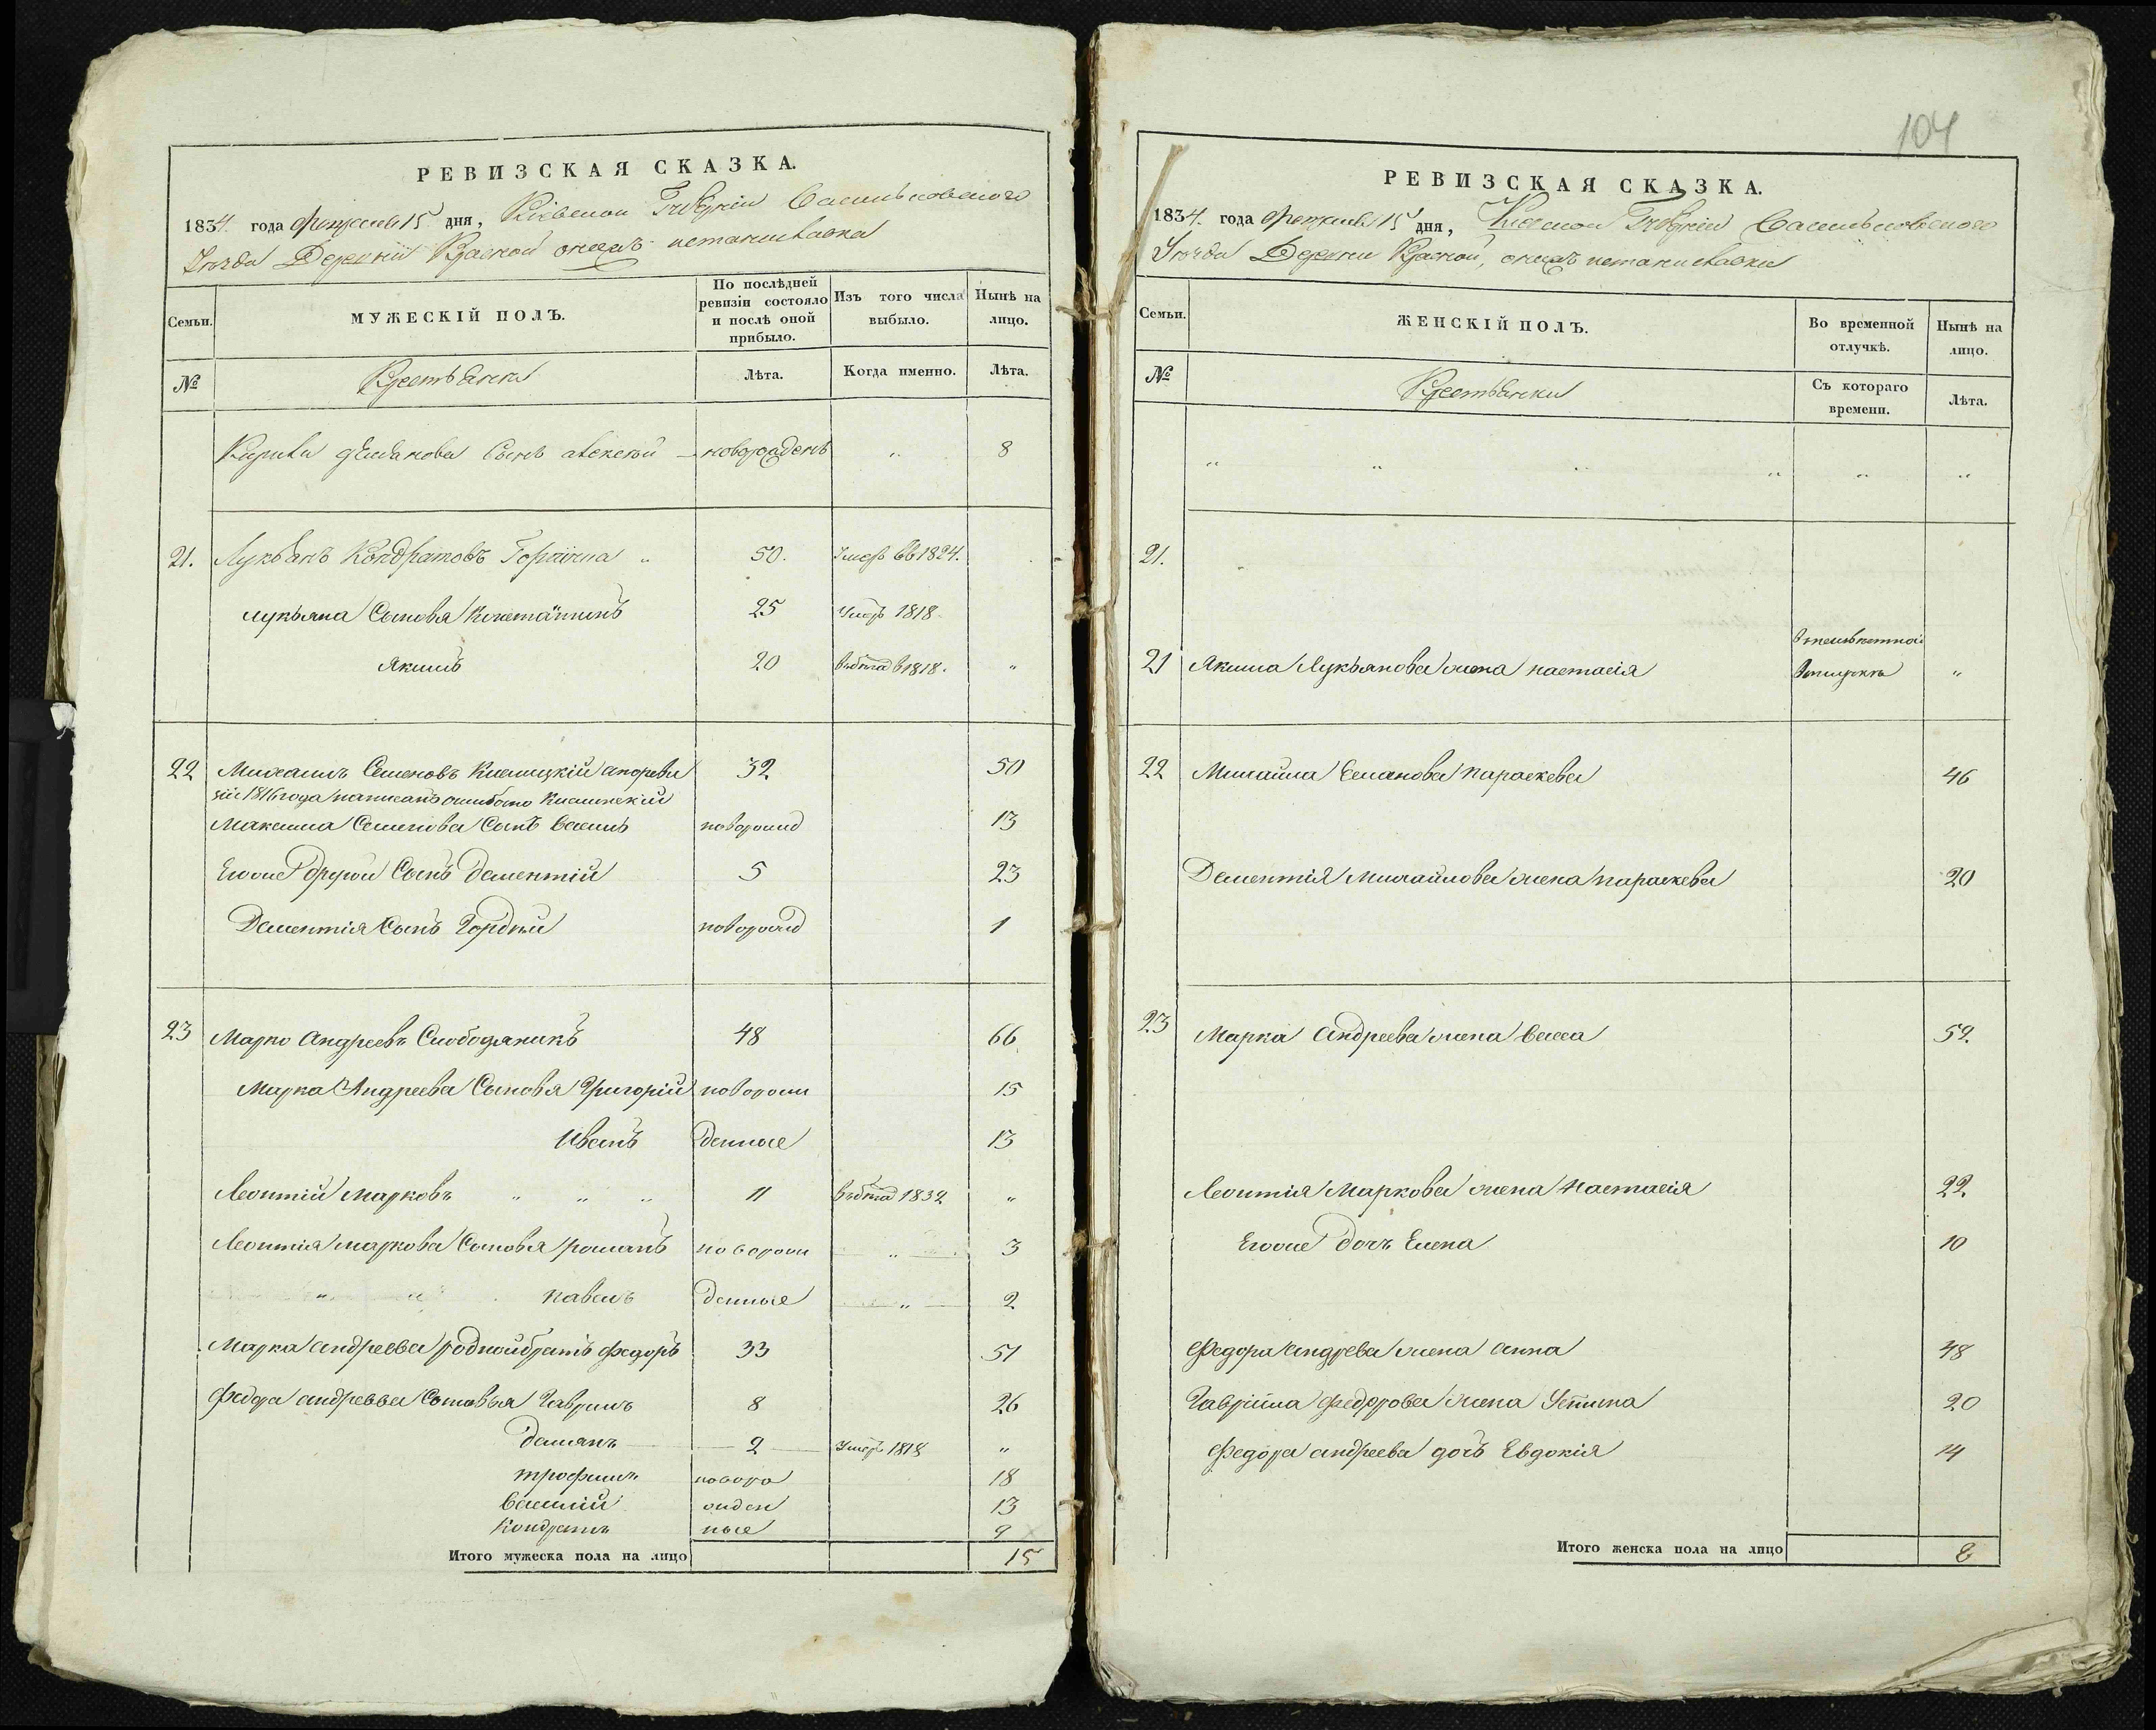 РЕВИЗСКАЯ СКАЗКА.
1834. года февраля 15 дня, Кіевской Губерніи Васильковскаго
Уезда Деревни Красной
Семьи. МУЖЕСКІЙ ПОЛЪ. По послѣдней ревизіи состояло и послѣ оной прибыло. Изъ того числа выбыло. Нынѣ на лицо.
№ Крестьяни Лѣта. Когда именно. Лѣта.
Кирила Сынъ алексей новорожденъ " 8
21. Лукьянъ Кондратовъ " 50. Умеръ въ 1824.
лукьяна Сыновя Константинъ 25 Умеръ 1818
Якимъ 20 въ 1818. "
22 Михаилъ Семеновъ 32 50
зіи 1816 года написанъ
Семенова Сынъ Василь новорожд 13
Егоже другой Сынъ Дементій 5 23
Дементія Сынъ Гордий новорожд 1
23 Марко Андреевъ Слободяникъ 48 66
Марка Андреева Сыновя Григорій новорож 15
Иванъ денные 13
Леонтій Марковъ " " " 11 1832 "
Леонтія маркова Сыновя романъ новорож " 3
" " павелъ денные " 2
Марка андреева родной братъ федоръ 33 51
федора андреева Сыновья Гаврилъ 8 26
демянъ 2 Умеръ 1818 "
трофимъ новоро 18
василій жден 13
Кондратъ ные 9
Итого мужеска пола на лицо 15
104
РЕВИЗСКАЯ СКАЗКА.
1834. года февраля 15 дня, Кіевской Губерніи Васильковскаго
Уезда Деревни Красной,
Семьи. ЖЕНСКІЙ ПОЛЪ. Во временной отлучкѣ. Нынѣ на лицо.
№ Крестьянки Съ котораго времени. Лѣта.
" " " " " "
21.
21 Якима Лукьянова жена настасія "
22 Михайла Семенова параскева 46
Дементія Михайлова жена параскева 20
23 Марка Андреева жена васса 52
Леонтія Маркова жена Настасія 22
Егоже дочъ Елена 10
Федора андреева жена анна 48
Гаврійла федорова жена 20
Федора андреева дочъ Евдокія 14
Итого женска пола на лицо 8